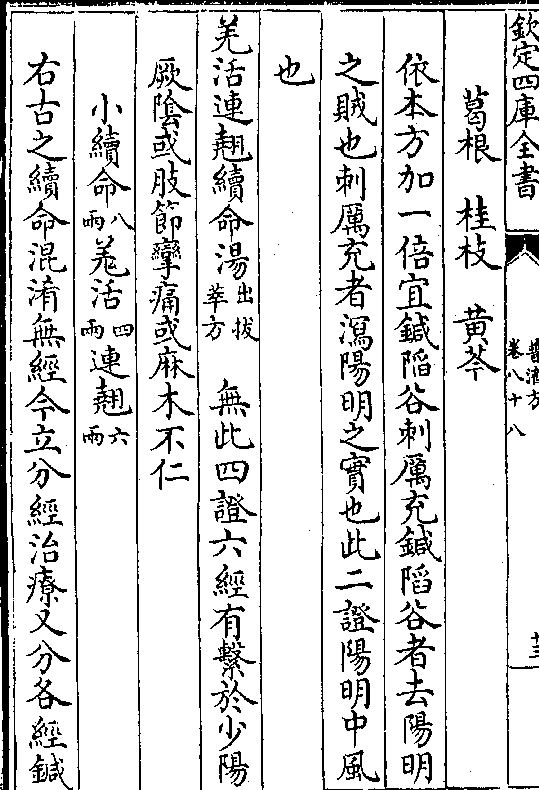 欽定四庫全書
普濟方
卷八十八
十三
葛根 桂枝 黄芩
依本方加一倍宜鍼陷谷刺厲兌鍼陷谷者去陽明
之賊也刺厲兌者瀉陽明之實也此二證陽明中風
也
羌活連翹續命湯出拔萃方 無此四證六經有繫於少陽
厥陰或肢節攣痛或麻木不仁
小續命八兩羌活四兩連翹六兩
右古之續命混淆無經今立分經治療又分各經鍼